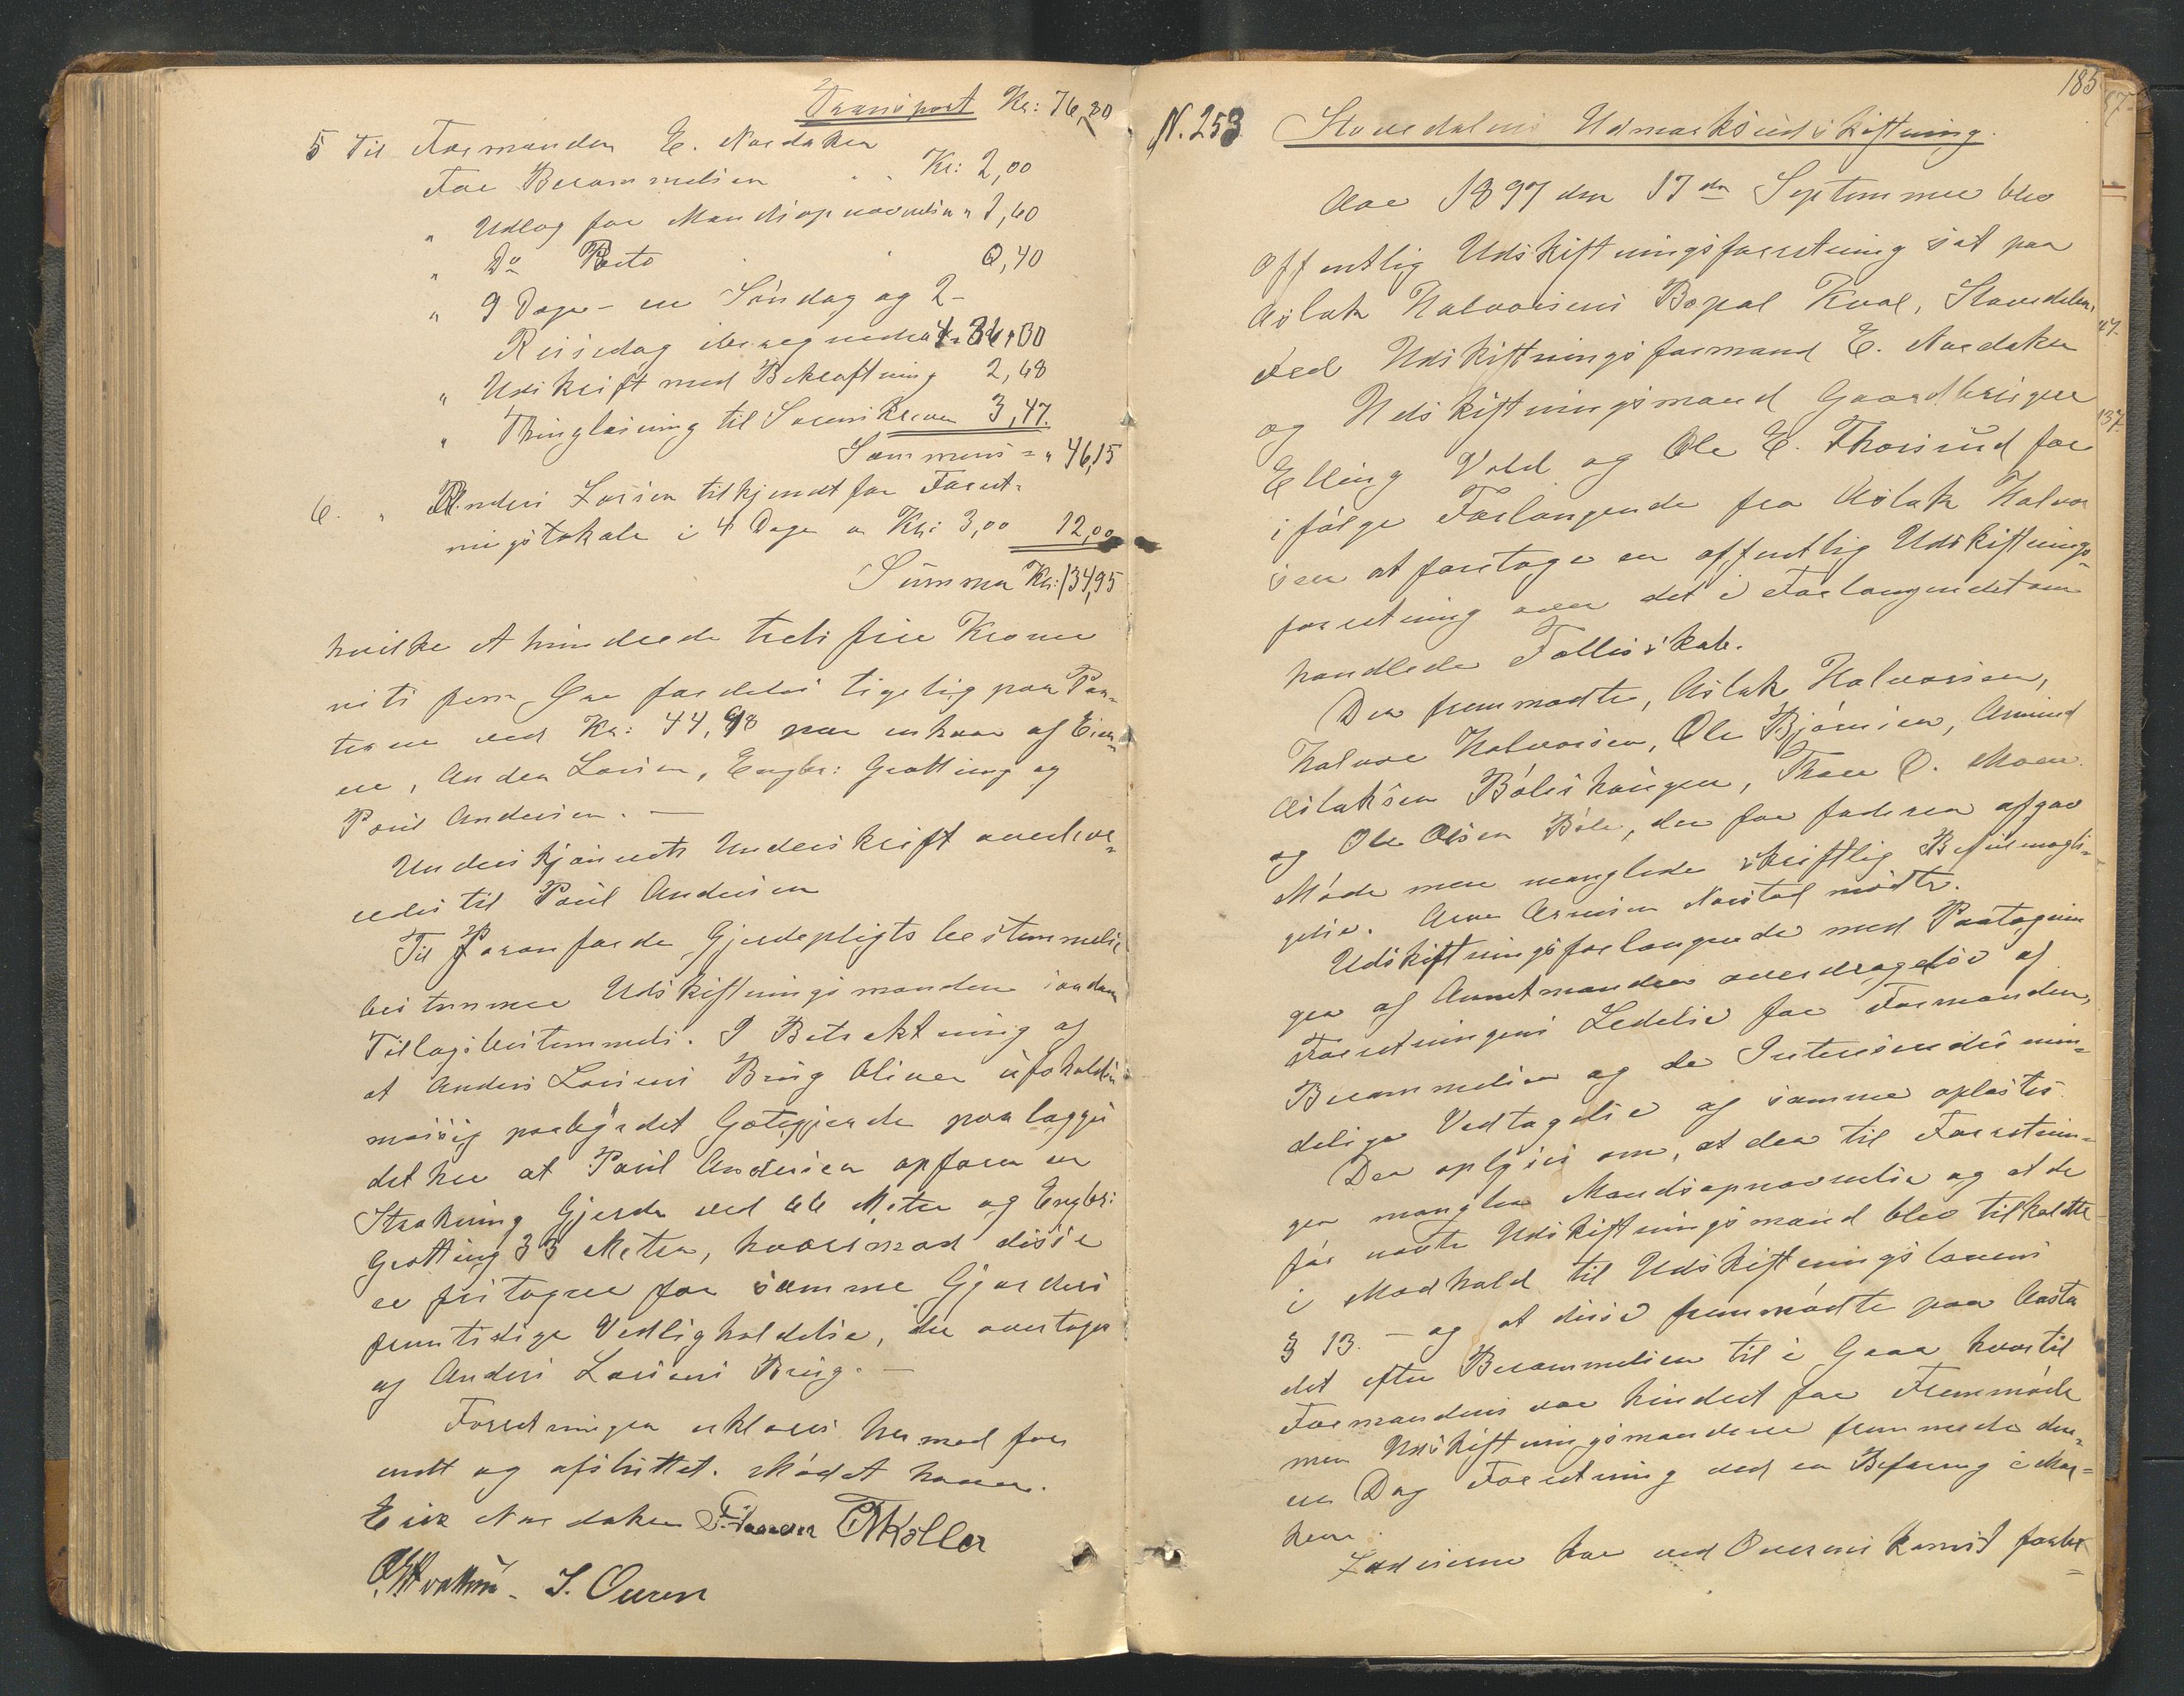 Transport Kr: 76,80
5 Til Formanden E. Nordaker
For Berammelsen " " Kr: 2,00
" Udlæg for Mandsopnævnelsen "
" Do Porto " 0,40
" 9 Dage - en Søndag og 2 -
Reisedag iberegnede
" Udskrift med Bekræftning 2,48
" Thinglæsning til Sorenskriveren 3,47.
Sammens = " 46,15
6. " Anders Larsen tilkjendt for Forret-
ningslokale i 4 Dage a Kr: 3,00 12,00
Summa Kr: 134,95
hvilke et hundrede treti fire Kroner
niti fem Øre fordeles ligelig paa Par-
terne ved Kr: 44,98 paa enhver af Eier-
ne, Anders Larsen, Engbr: Grøtting og
Poul Andersen. —
Underskjønnets Underskrift overleve-
redes til Poul Andersen
Til Foranførde Gjerdepligts bestemmelse
bestemmer Udskiftningsmændene saadan
Tillægsbestemmels. I Betraktning af
at Anders Larsens Brug bliver uforholds
mæssig paabyrdet Gjerde paalægges
det her at Poul Andersen opfører en
Strækning Gjerde ved 66 Meter og Engbr:
Grøtting 33 Meter, hvorimod disse
er fritagne for samme Gjerdes
fremtidige Vedligholdelse, der overtages
af Anders Larsens Brug. —
Forretningen erklæres hermed for
endt og afsluttet. Mødet hævet.
Erik Nordaker
S. Ouren
185
N. 253 Stavedalens Udmarksudskiftning.
Aar 1897 den 17de September blev
offentlig Udskiftningsforretning sat paa
Aslak Halvorsens Bopæl Kval, Stavedalen,
ved Udskiftningsformand E. Nordaker
og Udskiftningsmænd Gaardbruger
Elling Vold og Ole E. Thorsrud for
ifølge Forlangende fra Aslak Halvor
sen at foretage en offentlig Udskiftnings-
forretning over det i Forlangendet om
handlede Fællesskab.
Der fremmødte, Aslak Halvorsen,
Halvor Halvorsen, Ole Bjørnsen, Amund
Aslaksen Bølshaugen, Thore O. Moen
og Ole Olsen Bøle, der for faderen afgav
Møde men manglede skriftlig Befuldmægti-
gelse. Arne Arnesen mødte.
Udskiftningsforlangende med Paategnin
ger af Amtmanden overdragelse af
Forretningens Ledelse for Formanden,
Berammelsen og de Interesseredes min-
delige Vedtagelse af samme oplæstes.
Der oplyses om, at der til Forretnin-
gen mangler Mandsopnævnelse og at de
før nævnte Udskiftningsmænd blev tilkaldte
i Medhold til Udskiftningslovens
§ 13. — og at disse fremmødte paa Aasta
det efter Berammelsen til i Gaar hvortil
Formanden var hindret for Fremmøde
men Udskiftningsmændene fremmede den-
ne Dag Forretning ved en Befaring i Mar-
ken.
Lodeierne har ved Overenskomst forbe-